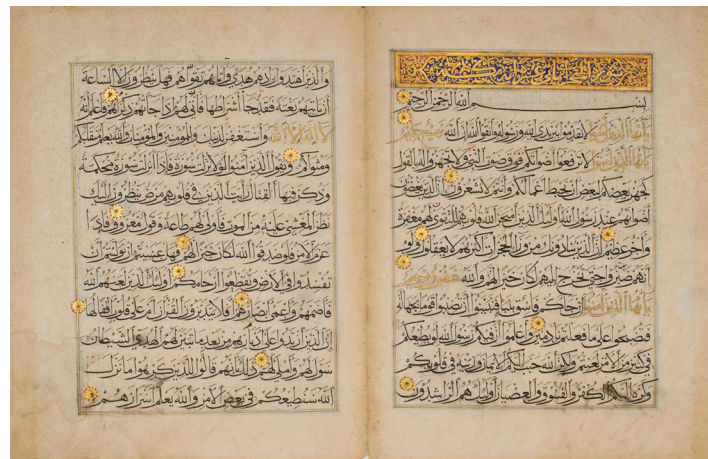 سورة الحجرات ثماني عشر اية
بسم الله الرحمن الرحيم
يا أيها الذين آمنوا لا تقدموا بين يدي الله ورسوله واتقوا الله إن الله سميع عليم
يا أيها الذين آمنوا لا ترفعوا أصواتكم فوق صوت النبي ولا تجهروا له بالقول
كجهر بعضكم لبعض أن تحبط أعمالكم وأنتم لا تشعرون إن الذين يغضون
أصواتهم عند رسول الله أولئك الذين امتحن الله قلوبهم للتقوى لهم مغفرة
وأجر عظيم إن الذين ينادونك من وراء الحجرات أكثرهم لا يعقلون ولو
أنهم صبروا حتى تخرج إليهم لكان خيرا لهم والله غفور رحيم
يا أيها الذين آمنوا إن جاءكم فاسق بنبإ فتبينوا أن تصيبوا قوما بجهالة
فتصبحوا على ما فعلتم نادمين واعلموا أن فيكم رسول الله لو يطيعكم
في كثير من الأمر لعنتم ولكن الله حبب إليكم الإيمان وزينه في قلوبكم
وكره إليكم الكفر والفسوق والعصيان أولئك هم الراشدون
والذين اهتدوا زادهم هدى وآتاهم تقواهم فهل ينظرون إلا الساعة
أن تأتيهم بغتة فقد جاء أشراطها فأنى لهم إذا جاءتهم ذكراهم فاعلم أنه
لا إله إلا الله واستغفر لذنبك وللمؤمنين والمؤمنات والله يعلم متقلبكم
ومثواكم ويقول الذين آمنوا لولا نزلت سورة فإذا أنزلت سورة محكمة
وذكر فيها القتال رأيت الذين في قلوبهم مرض ينظرون إليك
نظر المغشي عليه من الموت فأولى لهم طاعة وقول معروف فإذا
عزم الأمر فلو صدقوا الله لكان خيرا لهم فهل عسيتم إن توليتم أن
تفسدوا في الأرض وتقطعوا أرحامكم أولئك الذين لعنهم الله
فأصمهم وأعمى أبصارهم أفلا يتدبرون القرآن أم على قلوب أقفالها
إن الذين ارتدوا على أدبارهم من بعد ما تبين لهم الهدى الشيطان
سول لهم وأملى لهم ذلك بأنهم قالوا للذين كرهوا ما نزل
الله سنطيعكم في بعض الأمر والله يعلم إسرارهم